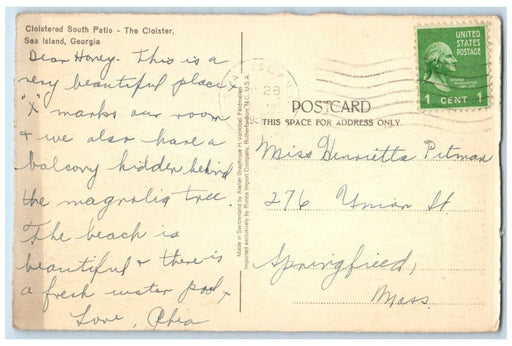 Cloistered South Patio - The Cloister,
Sea Island, Georgia
Dear Honey. This is a
very beautiful place,
"X" marks our room
& we also have a
balcony hidden behind
the magnolia tree.
The beach is
beautiful & there is
a fresh water pool,
Love,
Made in Switzerland by
Imported exclusively by Runca Import Company, Rutherfordton, N.C. U.S.A.
28
UNITED
STATES
POSTAGE
1 CENT 1
POSTCARD
THIS SPACE FOR ADDRESS ONLY.
Miss Henrietta Pitman
276 Union St
Springfield,
Mass.